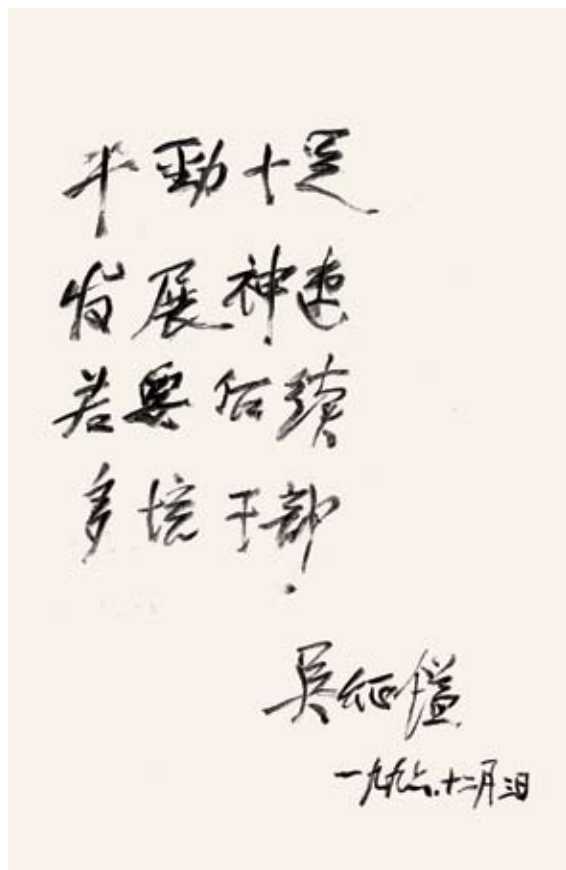 牛勁十足
发展神速
若要后續
多培干部.
吴征镒
一九九六.十二月三日